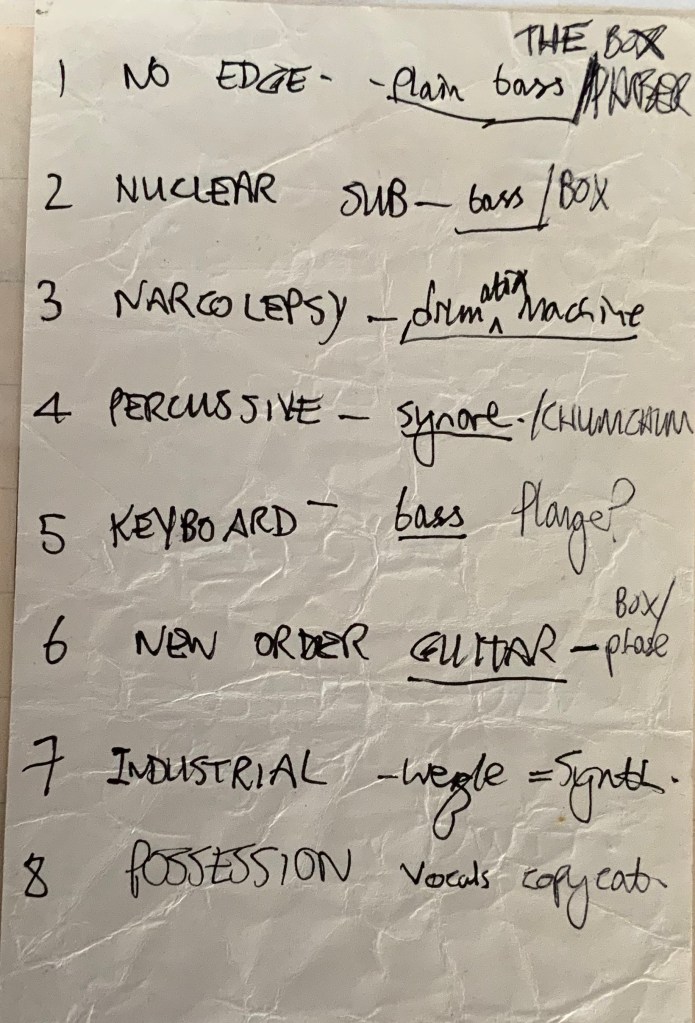 THE BOX
1 NO EDGE - - plain bass /
2 NUCLEAR SUB - bass / BOX
3 NARCOLEPSY - drum matix machine
4 PERCUSSIVE - synare. / CHUMCHUM
5 KEYBOARD - bass flange?
BOX/
6 NEW ORDER GUITAR - phase
7 INDUSTRIAL - = Synth.
8 POSSESSION vocals copycat.